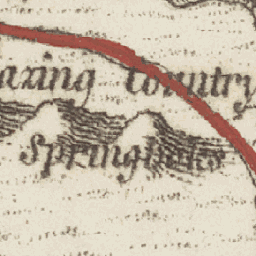 azing Country
Springboks